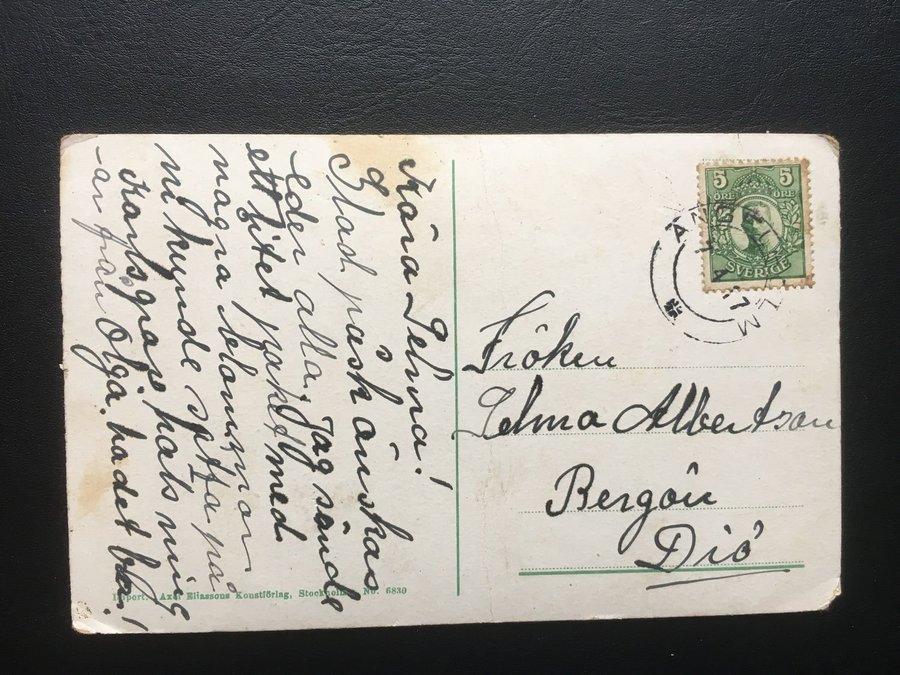 Kära Selma!
Glad påsk önskas
eder alla. Jag sände
ett litet paket med
några blommor
ni kunde sätta på
Karls grav. hälsning
-ar från Olga. ha det bra!
Fröken
Selma Albertson
Bergön
Diö
5 5
ÖRE ÖRE
SVERIGE
Import. Axel Eliassons Konstförlag, Stockholm. No. 6830